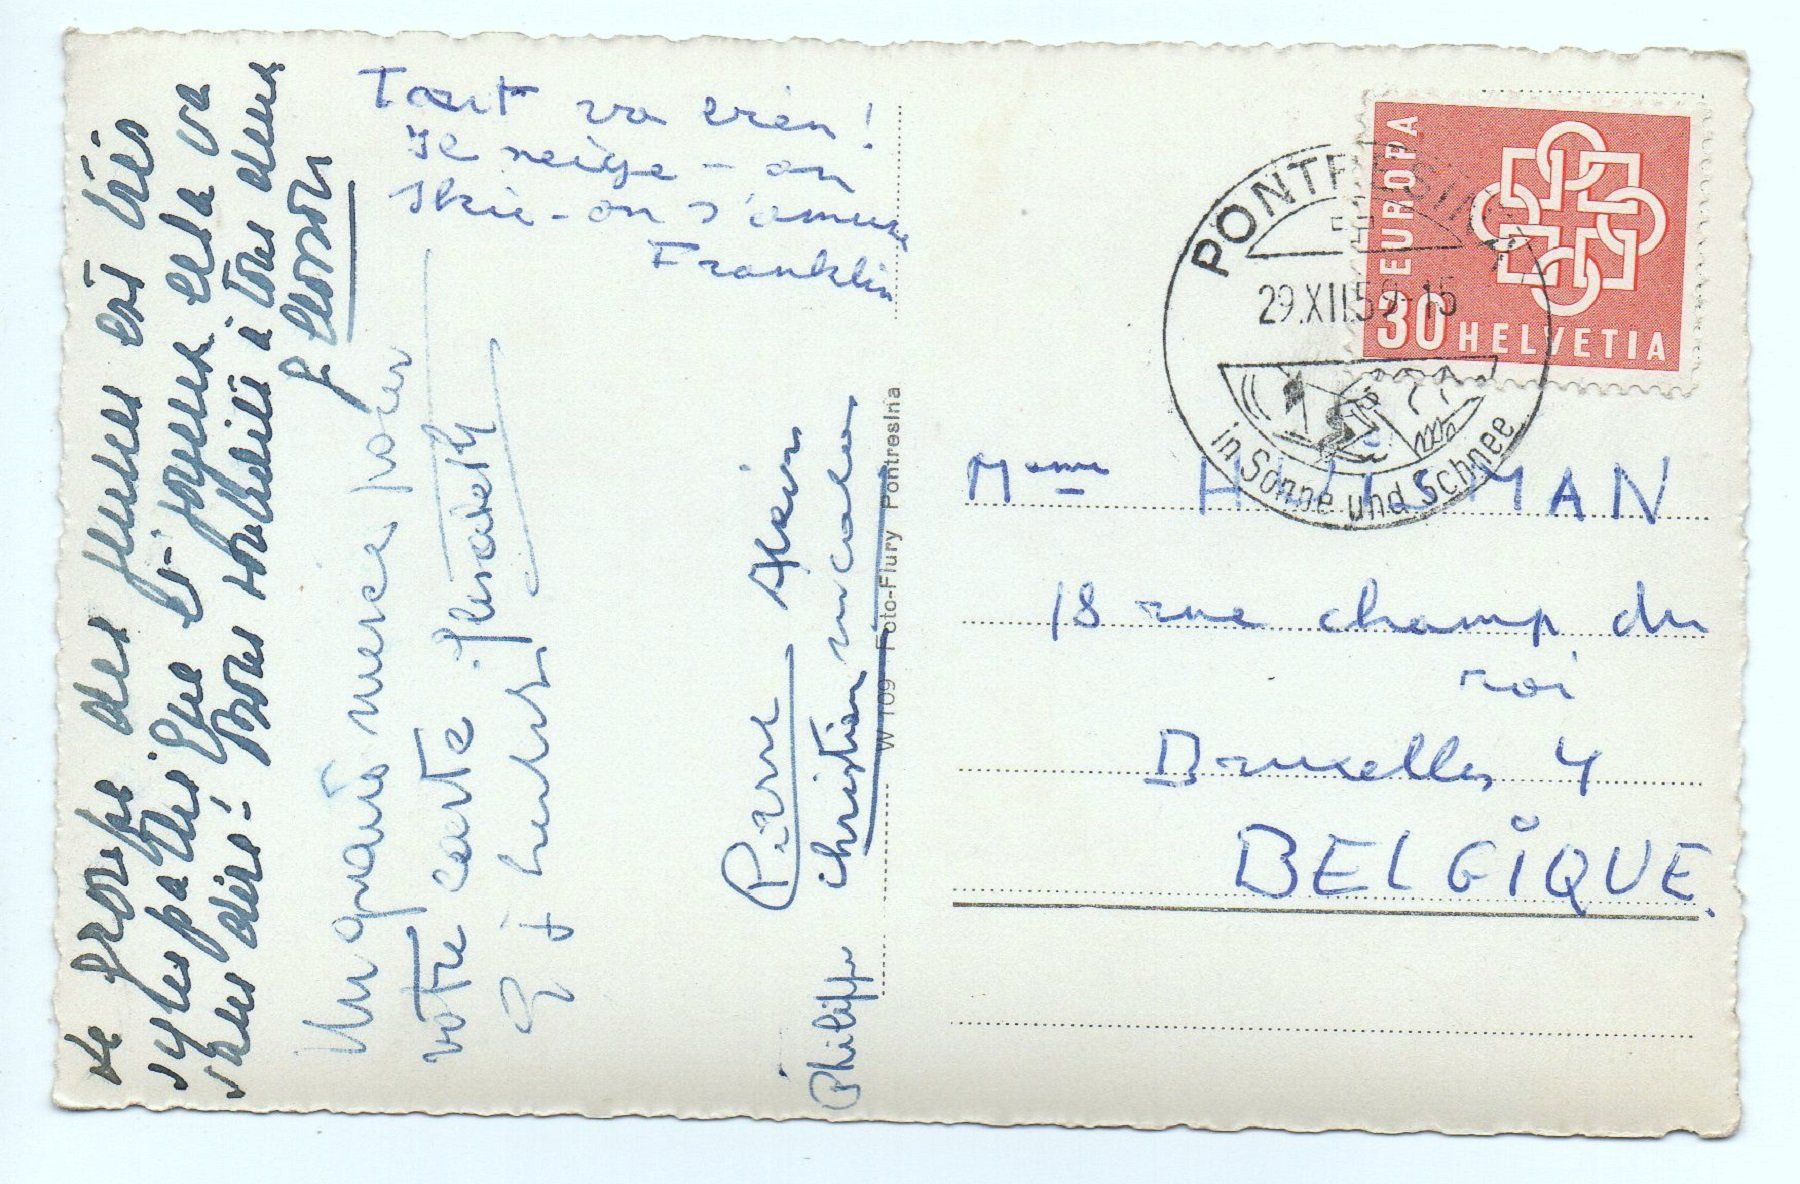 Tout va bien!
Il neige - on
skie - on s'amuse
Franklin
Le groupe des jeunes est très
sympathique et joyeux cela va
sans dire! Bons souhaits à tous deux
Un grand merci pour
votre carte. Elisabeth
Pierre Alain
Christian Nicolas
Philippe
W 109 Foto-Flury Pontresina
EUROPA
30 HELVETIA
PONTRESINA
29.XII.59-15
in Sonne und Schnee
Mme HUISMAN
18 rue champ du
roi
Bruxelles 4
BELGIQUE.